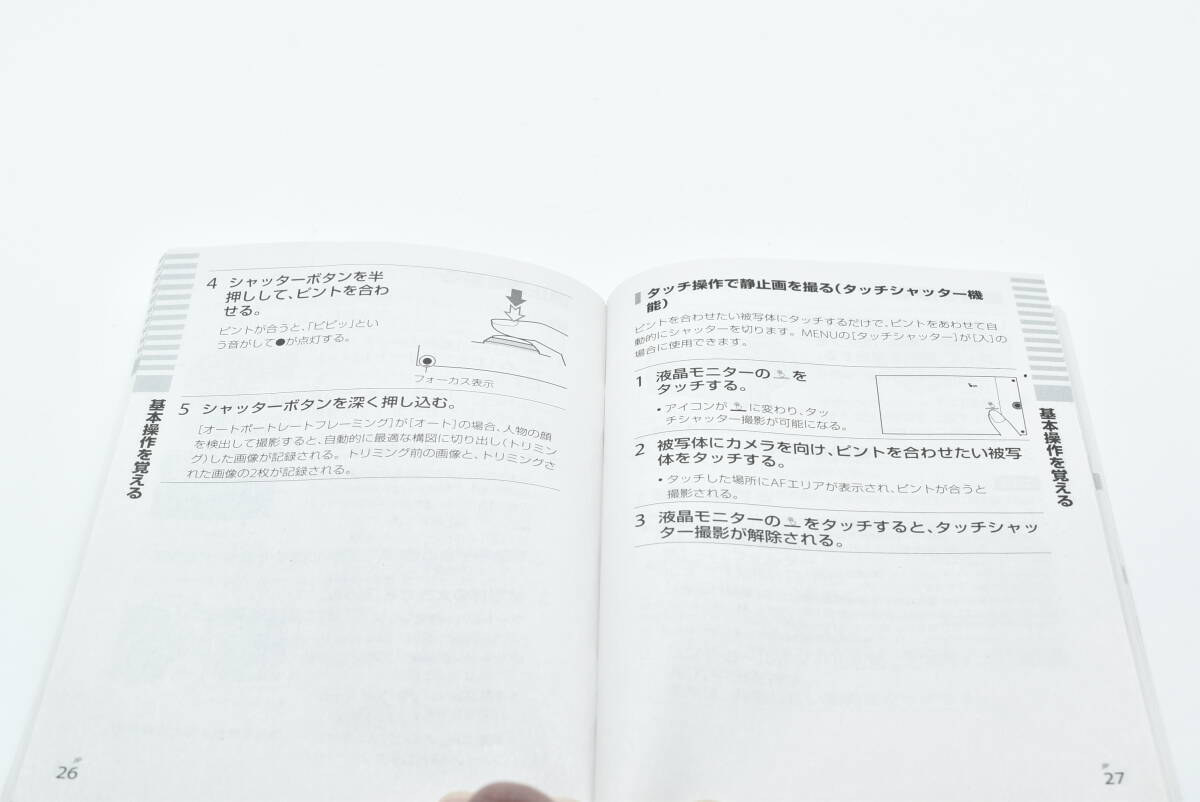 4 シャッターボタンを半
押しして、ピントを合わ
せる。
ピントが合うと、「ピピッ」とい
う音がして●が点灯する。
フォーカス表示
5 シャッターボタンを深く押し込む。
[オートポートレートフレーミング]が[オート]の場合、人物の顔
を検出して撮影すると、自動的に最適な構図に切り出し(トリミン
グ)した画像が記録される。トリミング前の画像と、トリミングさ
れた画像の2枚が記録される。
基本操作を覚える
26
JP
タッチ操作で静止画を撮る(タッチシャッター機
能)
ピントを合わせたい被写体にタッチするだけで、ピントをあわせて自
動的にシャッターを切ります。MENUの[タッチシャッター]が[入]の
場合に使用できます。
1 液晶モニターの を
タッチする。
• アイコンが に変わり、タッ
チシャッター撮影が可能になる。
2 被写体にカメラを向け、ピントを合わせたい被写
体をタッチする。
• タッチした場所にAFエリアが表示され、ピントが合うと
撮影される。
3 液晶モニターの をタッチすると、タッチシャッ
ター撮影が解除される。
基本操作を覚える
JP
27